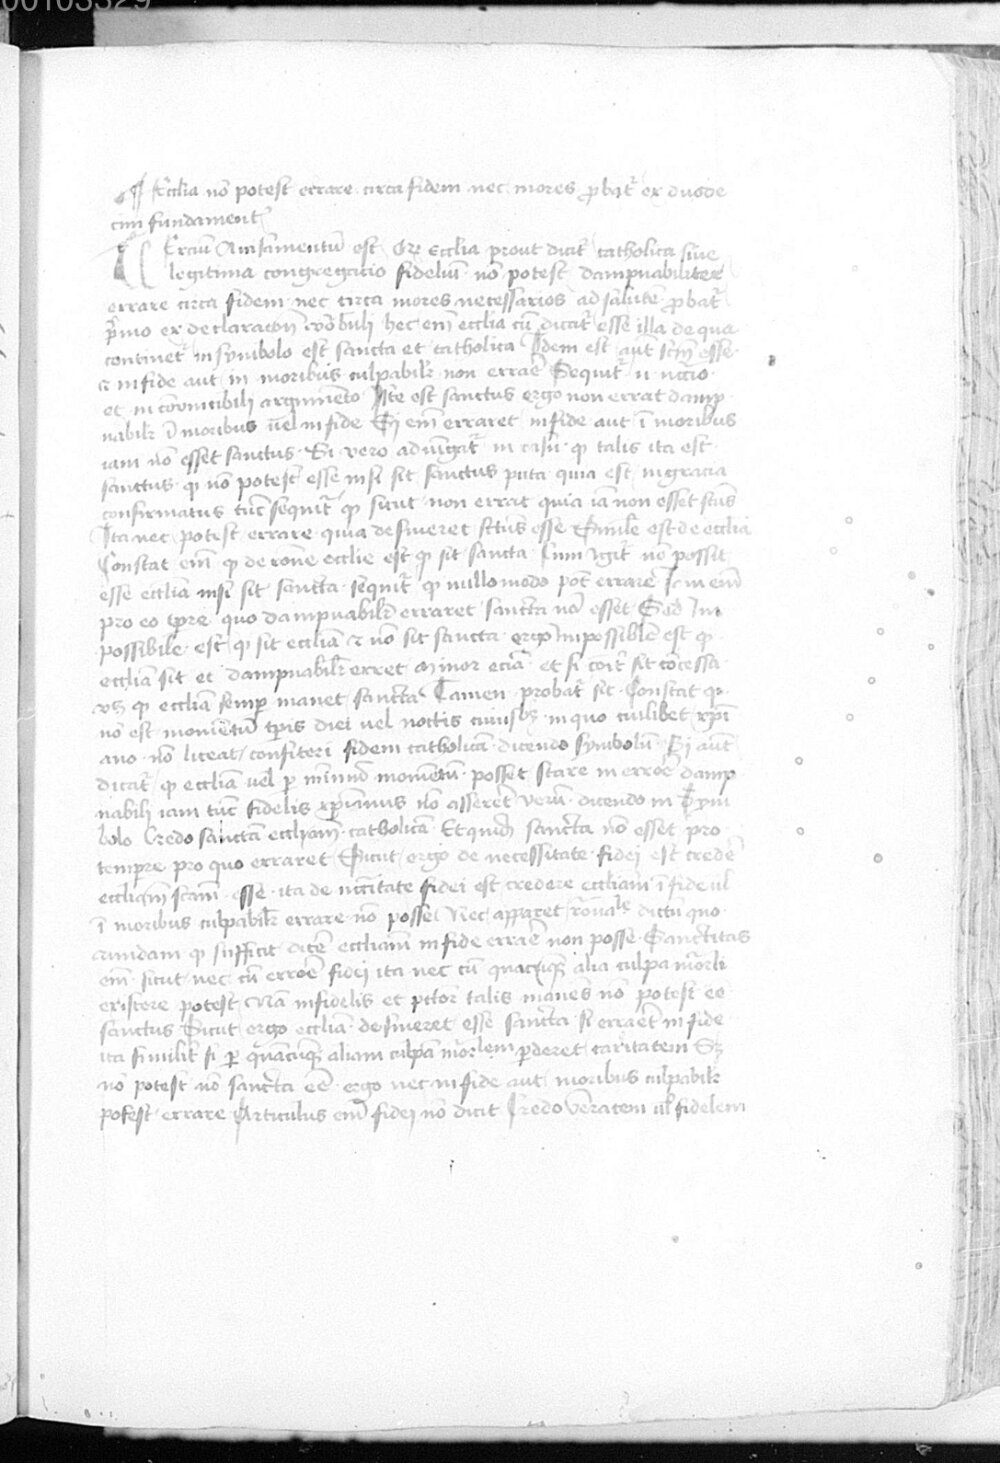 00103329
¶ Ecclia nō potest errare circa fidem nec mores ꝓbat᷒ ex duode
cim fundament᷒
Erciū est ecclia prout dicit᷒ catholica siue
legitima congregacio fideliū nō potest dampnabiliter
errare circa fidem nec circa mores necessarios ad salutē ꝓbat᷒
p̄mo ex declaracōn hec em̄ ecclia cū dicat᷒ esse illa de qua
continet᷒ in symbolo est sancta et catholica Idem est aut scām esse
⁊ in fide aut in moribus culpabilr̄ non errare Sequit᷒ n
et in cōuincibili argumēto Iste est sanctus ergo non errat damp
nabilr̄ ī moribus uel in fide Si em̄ erraret in fide aut ī moribus
iam nō esset sanctus Si vero adiūgat᷒ in casu ꝙ talis ita est
sanctus ꝙ nō potest esse nisi sit sanctus puta quia est in gracia
confirmatus tūc sequit᷒ ꝙ sicut non errat quia iā non esset scūs
Ita nec potest errare quia desineret scūs esse Simile est de ecclia
Constat em̄ ꝙ de rōne ecclie est ꝙ sit sancta Cum igit᷒ nō possit
esse ecclia nisi sit sancta sequit᷒ ꝙ nullo modo pōt errare em̄
pro eo tp̄re quo dampnabilr̄ erraret sancta nō esset Sed Im
possibile est ꝙ sit ecclia ⁊ nō sit sancta ergo impossible est ꝙ
ecclia sit et dampnabilr̄ erret Minor eciā et si cōit᷒ sit cōcessa
vz ꝙ ecclia semꝑ manet sancta Tamen probat᷒ sic Constat ꝙ
nō est momentū tp̄is diei uel noctis cuiusqꝫ in quo cuilibet xp̄i
ano nō liceat confiteri fidem catholicā dicendo symbolū Si aut
dicat᷒ ꝙ ecclia uel ꝑ minimū momentū posset stare in errore damp
nabili iam tūc fidelis xp̄ianus nō assereret verū dicendo in Sym
bolo Credo sanctam eccliam catholicā Et quidē sancta nō esset pro
tempore pro quo erraret Sicut ergo de necessitate fidei est credere
eccliam scām esse ita de nc̄citate fidei est credere eccliam ī fide ul
ī moribus culpabilr̄ errare nō posse Nec apparet rōnale dictū quo
rundam ꝙ sufficit dicere eccliam in fide errare non posse Sanctitas
em̄ sicut nec cū errore fidei ita nec cū quacūqꝫ alia culpa mortli
existere potest Nā infidelis et pctor talis manēs nō potest eē
sanctus Sicut ergo ecclia desineret esse sancta si erraret in fide
ita similit᷒ si ꝑ quācūqꝫ aliam culpā mortlem ꝑderet caritatem Sꝫ
nō potest nō sancta eē ergo nec in fide aut moribus culpabilr̄
potest errare Articulus em̄ fidei nō dicit Credo veracem ul fidelem